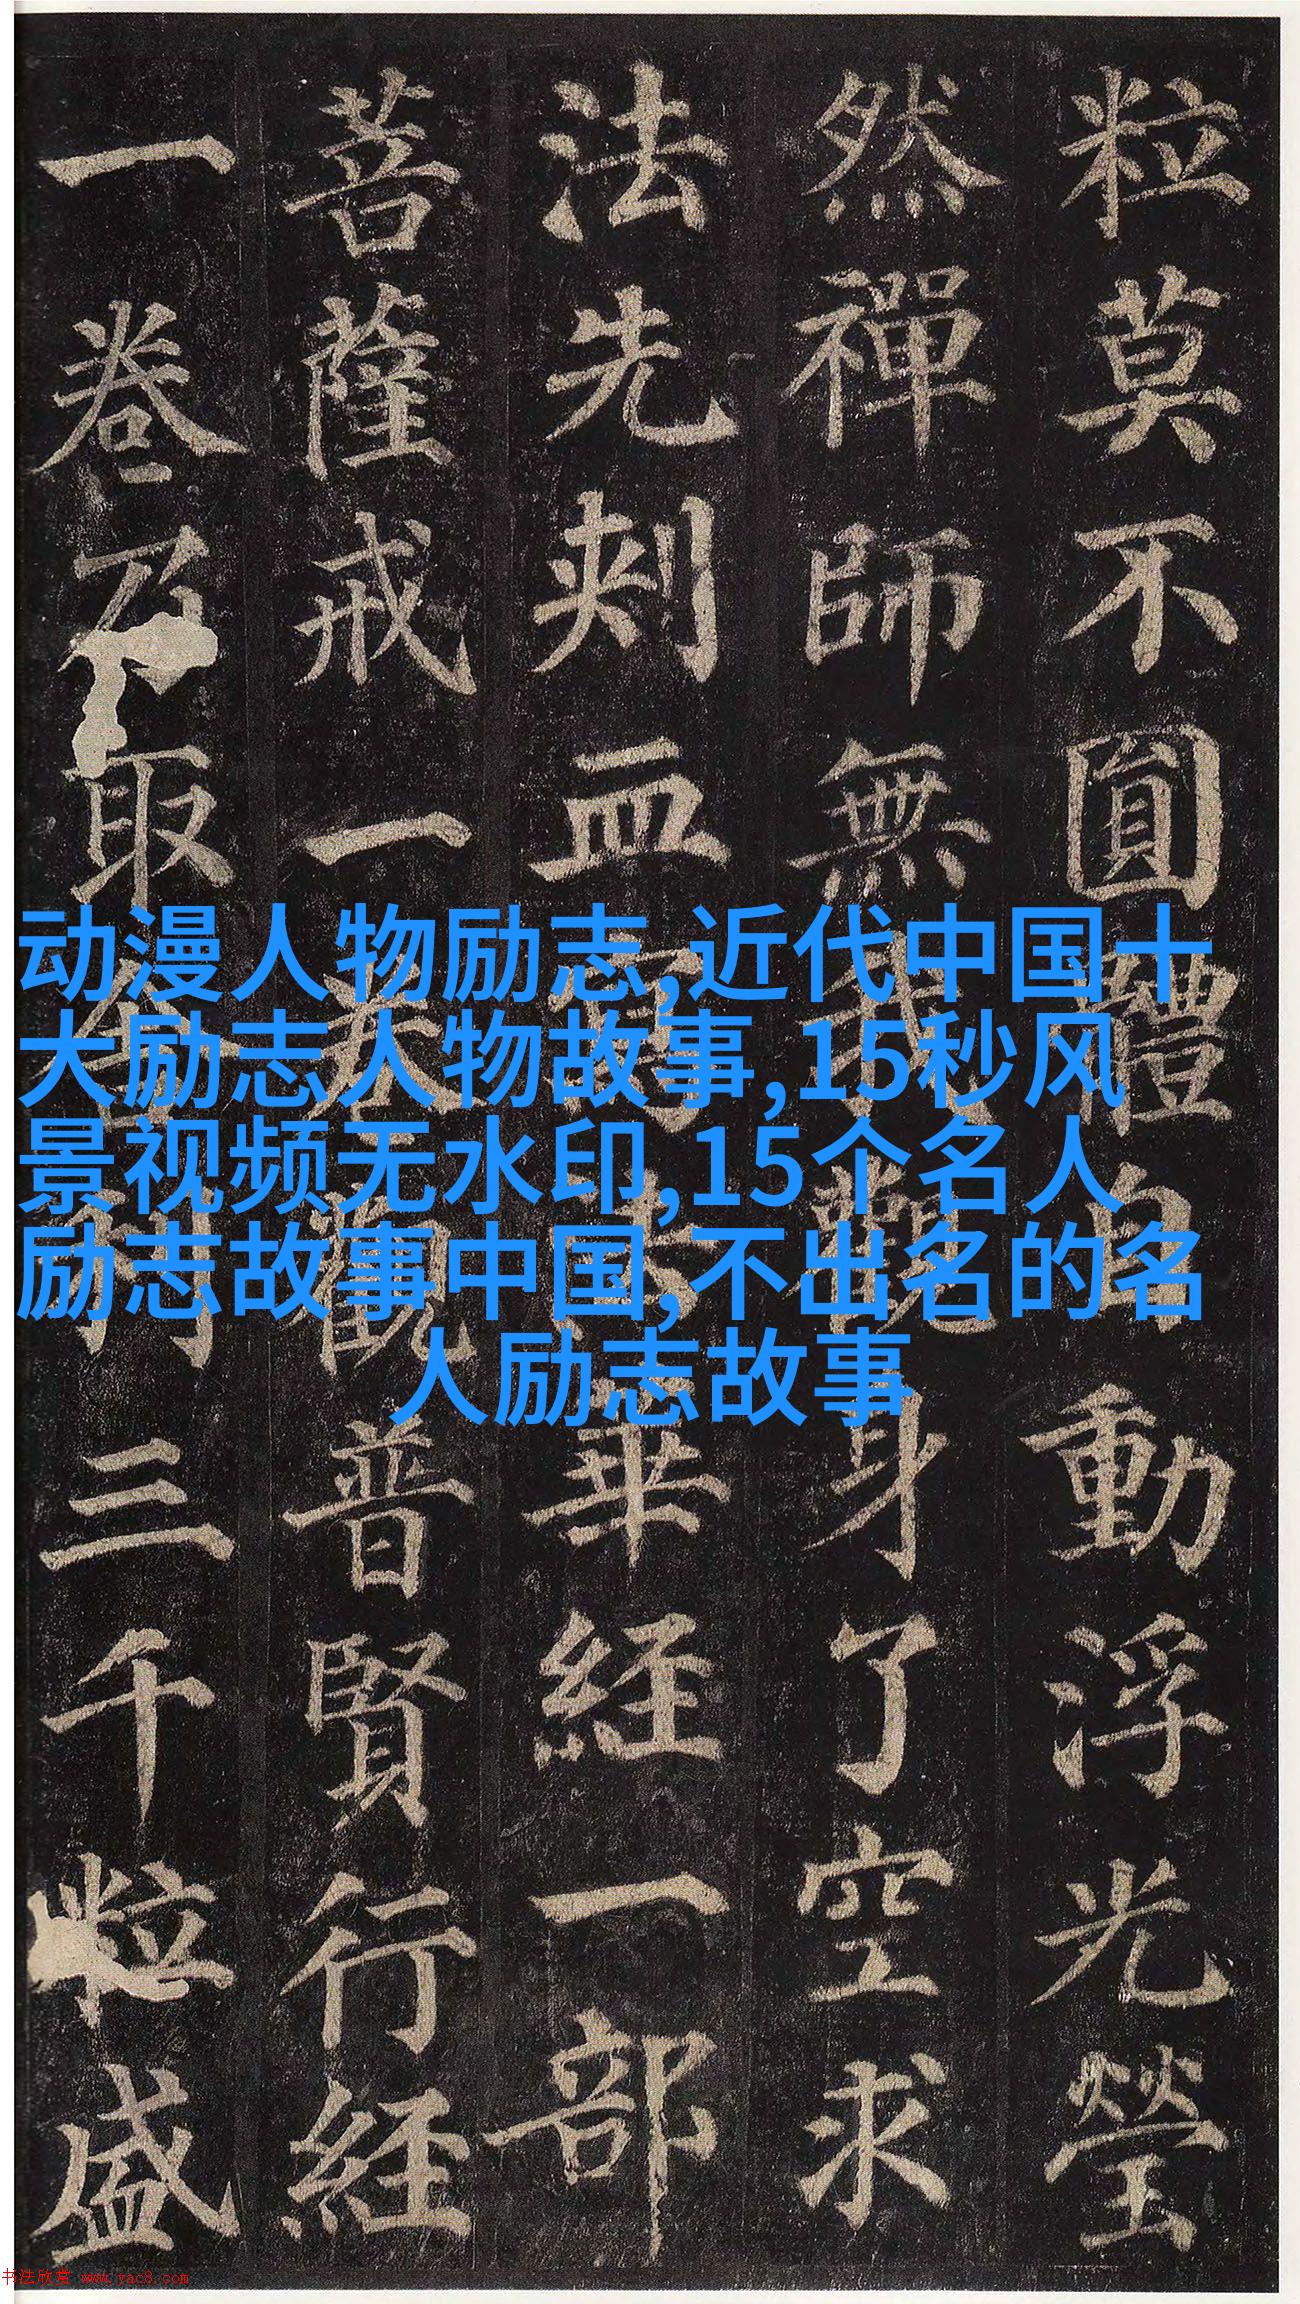 粒莫不圓體自動浮光瑩
然禪師無我觀身了空求
法先刺血寫法華経一部
菩薩戒一卷觀普賢行経
一卷乃取舍利三千粒盛
动漫人物励志,近代中国十
大励志人物故事,15秒风
景视频无水印,15个名人
励志故事中国,不出名的名
人励志故事
书法欣赏 www.yac8.com